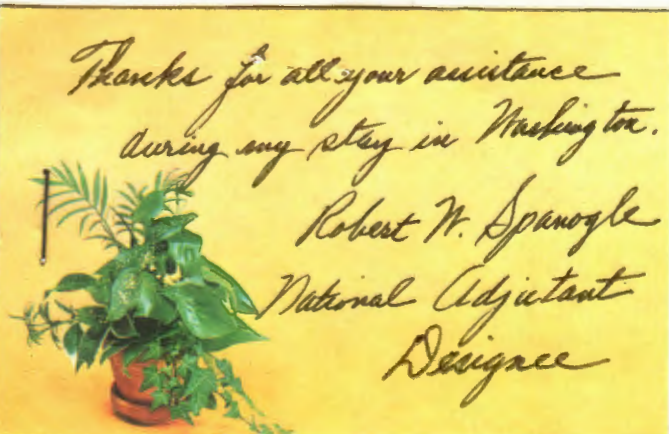 Thanks for all your assistance
during my stay in Washington.
Robert W. Spanogle
National Adjutant
Designee